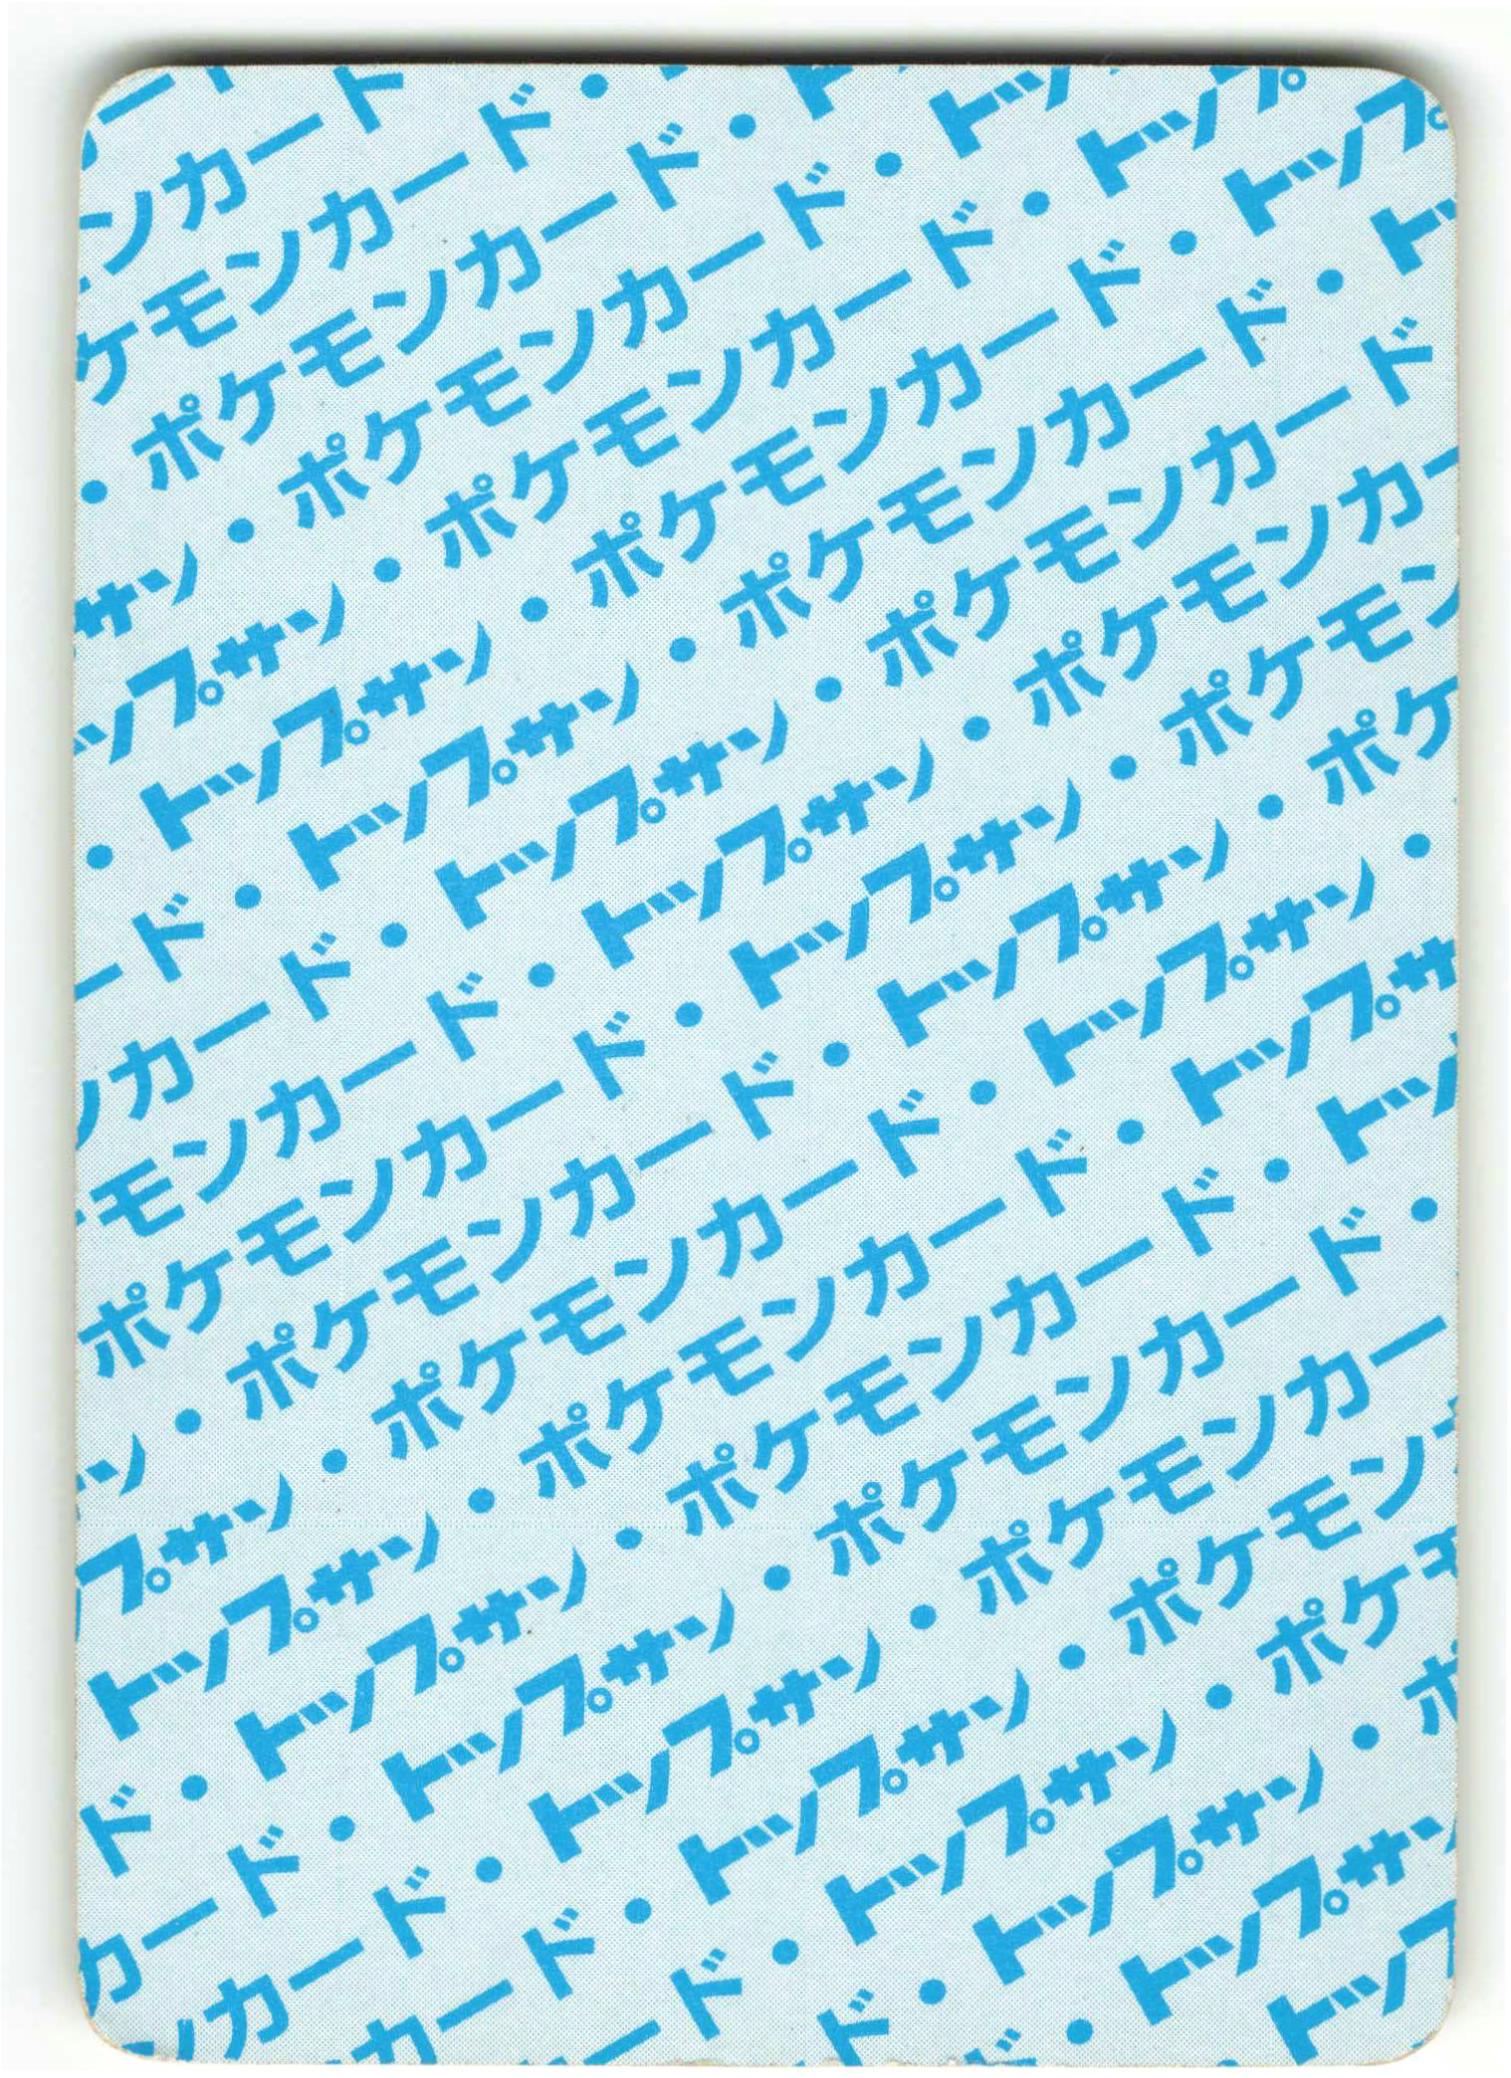 ード
ンカード
ケモンカード・
・ポケモンカード・ト
サン・ポケモンカード・トッ
ップサン・ポケモンカード・トップ
・トップサン・ポケモンカード・トップ
ード・トップサン・ポケモンカード・トッ
ンカード・トップサン・ポケモンカード
モンカード・トップサン・ポケモンカー
ポケモンカード・トップサン・ポケモン
ン・ポケモンカード・トップサン・ポケ
プサン・ポケモンカード・トップサン・
トップサン・ポケモンカード・トップサ
ド・トップサン・ポケモンカード・トッ
カード・トップサン・ポケモンカード・
ンカード・トップサン・ポケモンカー
カード・トップサン・ポケモン
ード・トップサン・ポケモ
ド・トップサン・ポ
ド・トップサ
トップ